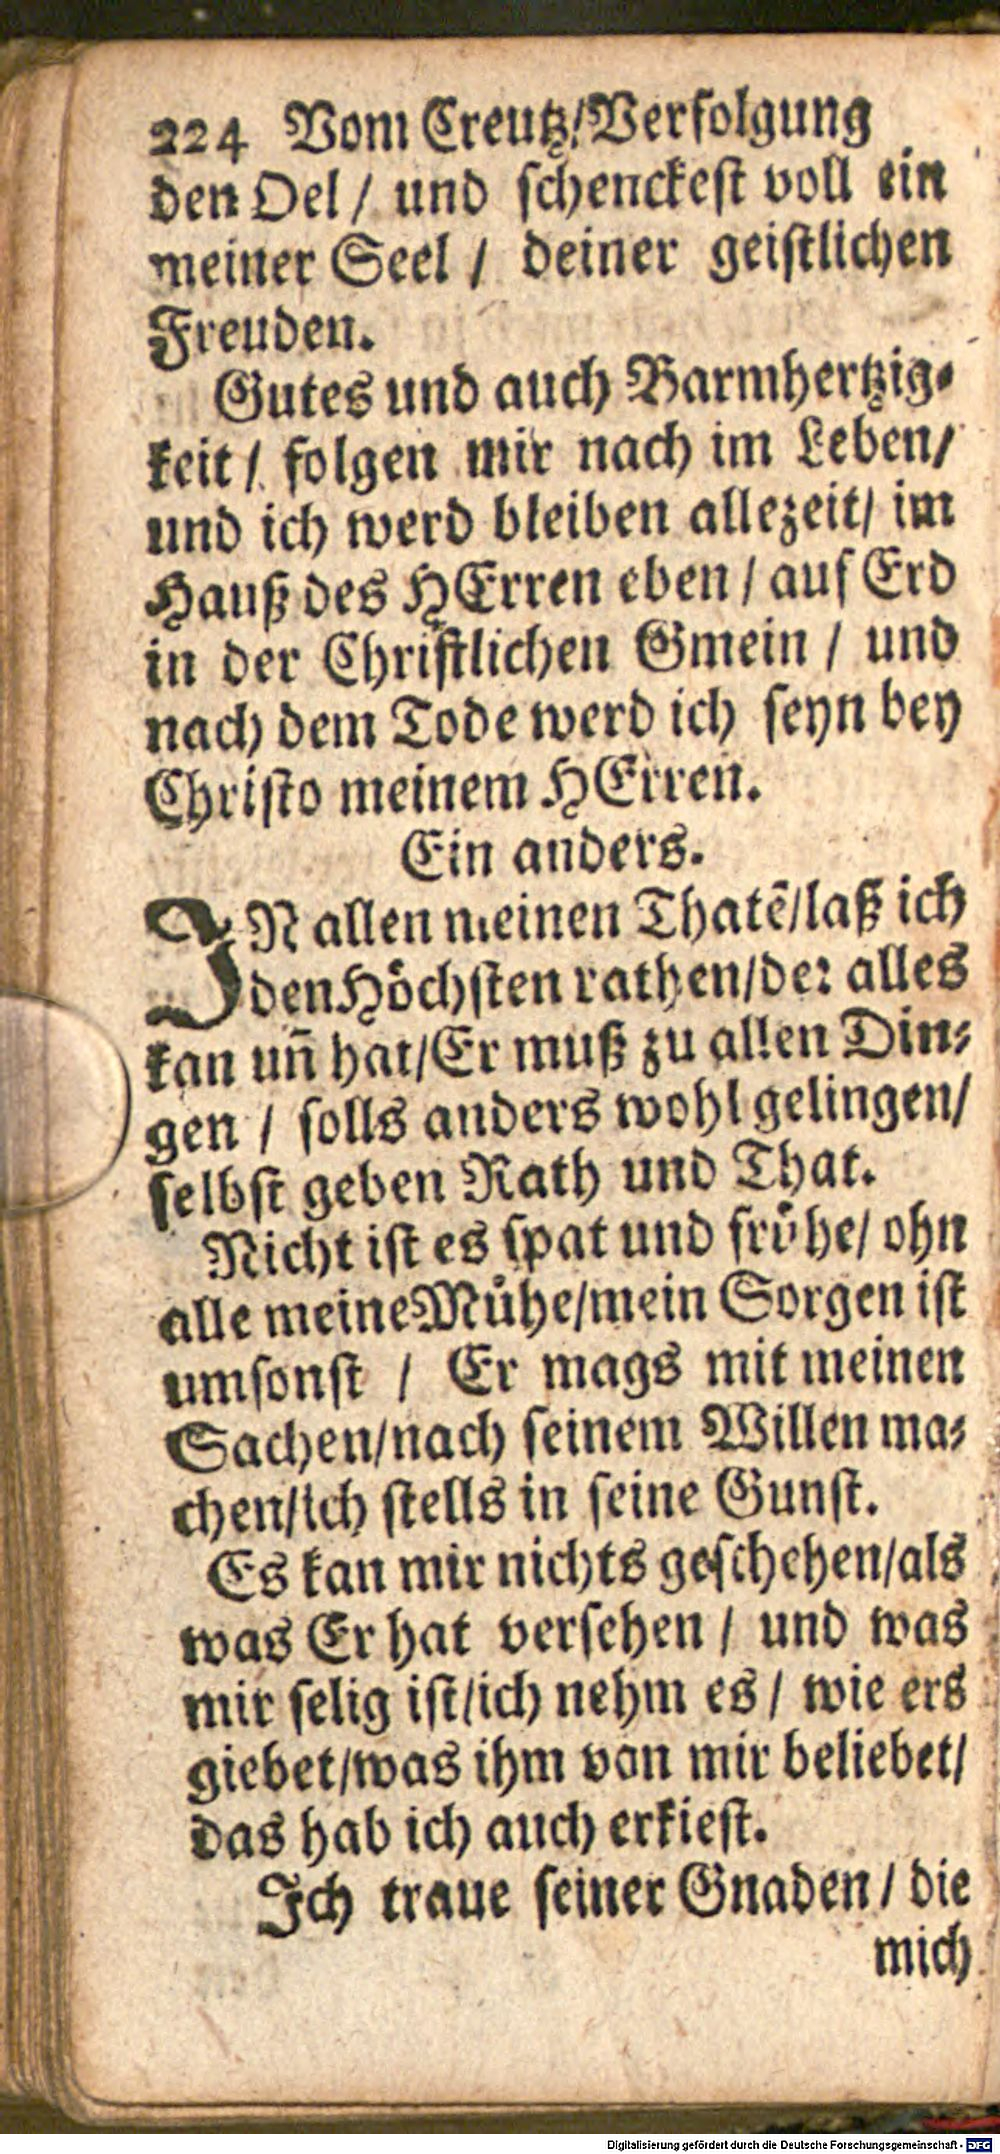 224 Vom Creutz/Verfolgung
den Oel / und ſchenckeſt voll ein
meiner Seel / deiner geiſtlichen
Freuden.
Gutes und auch Barmhertzig⸗
keit / folgen mir nach im Leben/
und ich werd bleiben allezeit/ im
Hauß des HErren eben / auf Erd
in der Chriſtlichen Gmein / und
nach dem Tode werd ich ſeyn bey
Chriſto meinem HErren.
Ein anders.
IN allen meinen Thatẽ/laß ich
den Hoͤchſten rathen/der alles
kan uñ hat/Er muß zu allen Din⸗
gen / ſolls anders wohl gelingen/
ſelbſt geben Rath und That.
Nicht iſt es ſpat und fruͤhe/ ohn
alle meine Muͤhe/mein Sorgen iſt
umſonſt / Er mags mit meinen
Sachen/nach ſeinem Willen ma⸗
chen/ich ſtells in ſeine Gunſt.
Es kan mir nichts geſchehen/als
was Er hat verſehen / und was
mir ſelig iſt/ich nehm es / wie ers
giebet/was ihm von mir beliebet/
das hab ich auch erkieſt.
Ich traue ſeiner Gnaden / die
mich
Digitalisierung gefördert durch die Deutsche Forschungsgemeinschaft - DFG